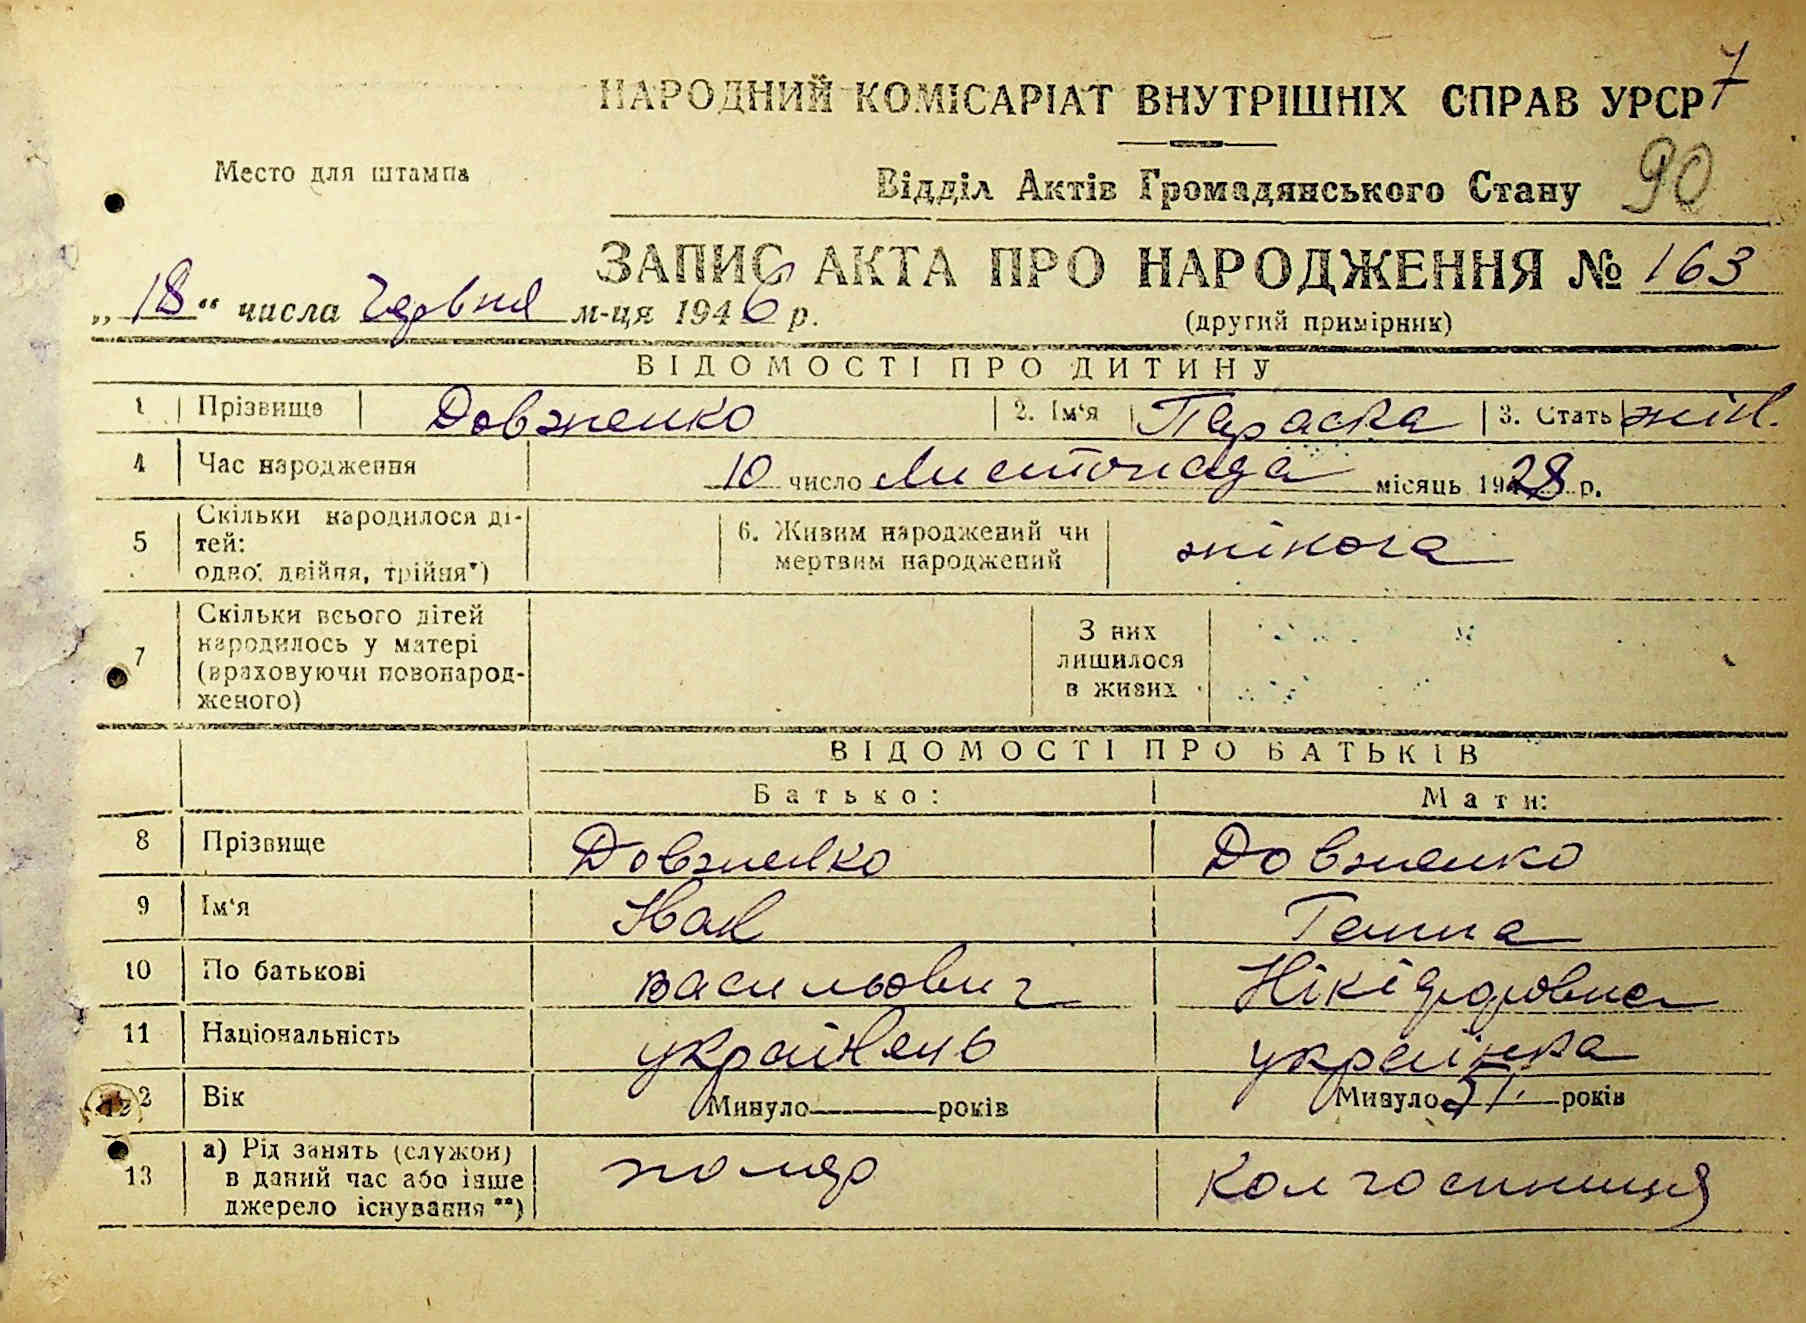 7
НАРОДНИЙ КОМІСАРІАТ ВНУТРІШНІХ СПРАВ УРСР
Место для штампа
Відділ Актів Громадянського Стану 90
ЗАПИС АКТА ПРО НАРОДЖЕННЯ № 163
„18“ числа червня м-ця 1946 р.
(другий примірник)
ВІДОМОСТІ ПРО ДИТИНУ
1 Прізвище Довженко 2. Ім'я Параска 3. Стать жін.
4 Час народження 10 число Листопада місяць 1928 р.
5 Скільки народилося ді-
тей:
одно, двійня, трійня*)
6. Живим народжений чи
мертвим народжений
жіноча
7 Скільки всього дітей
народилось у матері
(враховуючи новонарод-
женого)
З них
лишилося
в живих
ВІДОМОСТІ ПРО БАТЬКІВ
Батько: Мати:
8 Прізвище Довженко Довженко
9 Ім'я Іван Ганна
10 По батькові васильович Нікіфоровна
11 Національність українець українка
12 Вік Минуло років Минуло 51 років
13 а) Рід занять (служби)
в даний час або інше
джерело існування **)
помер Колгоспниця